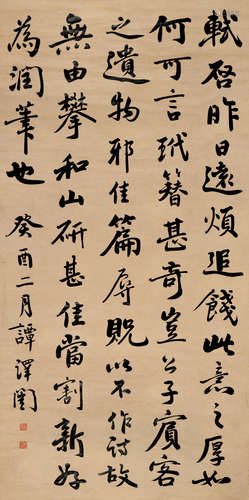 軾啓昨日遠煩追餞此意之厚如
何可言玳簪甚奇豈公子賓客
之遺物邪佳篇辱貺以不作詩故
無由攀和山研甚佳當割新好
為潤筆也
癸酉二月譚澤闓